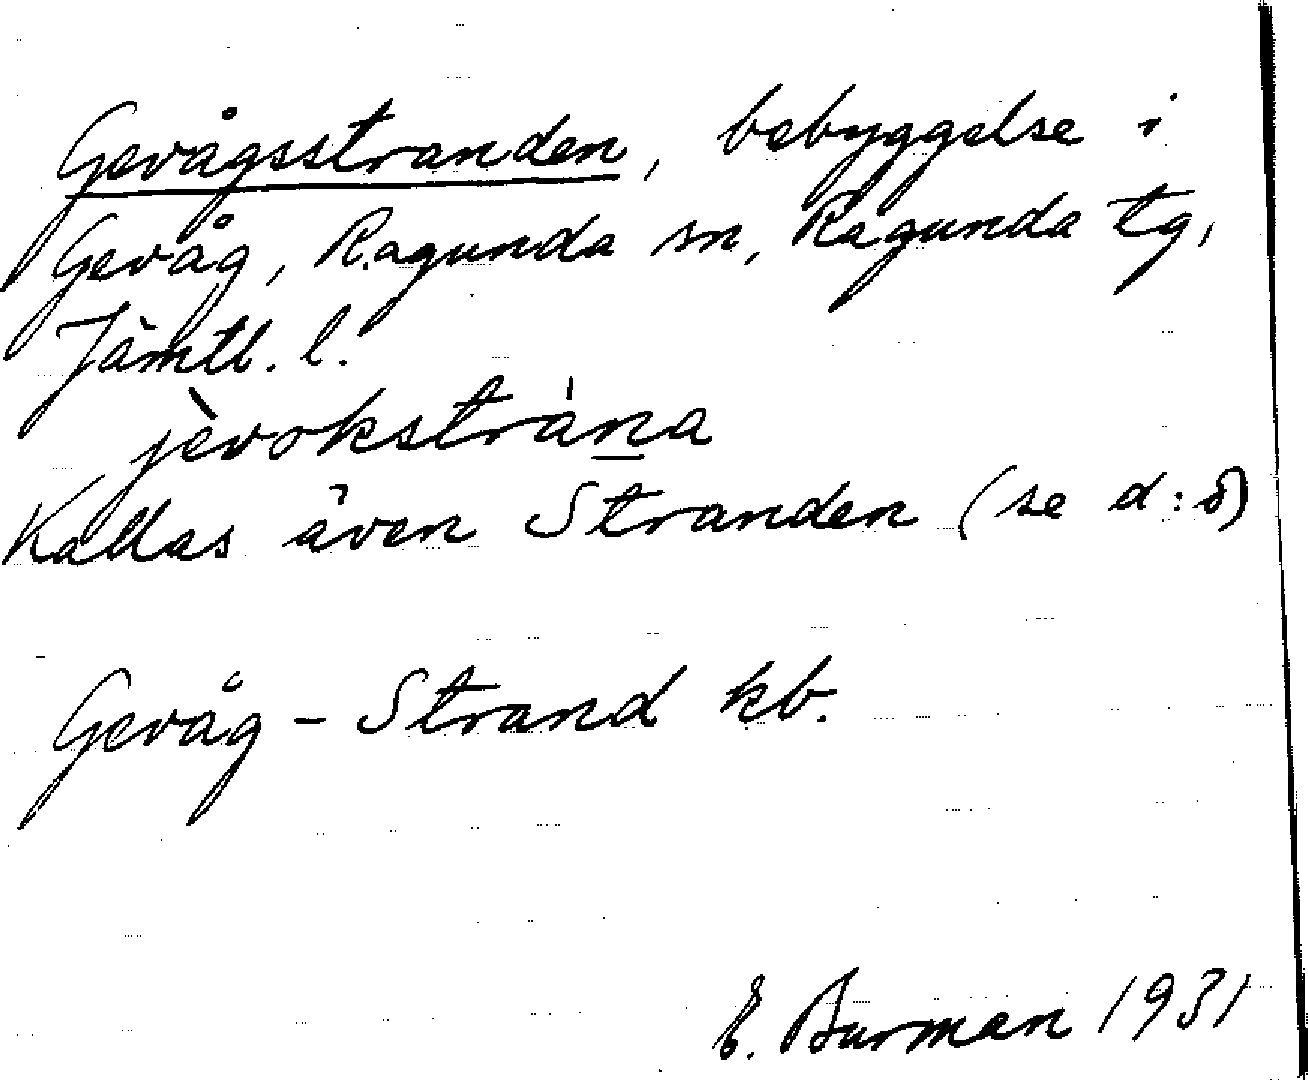 Gevågsstranden, bebyggelse i
Gevåg, Ragunda sn, Ragunda tg,
Jämtl. l.
jèvokstrána
Kallas även Stranden (se d:o)
Gevåg - Strand kb.
E. Burman 1931